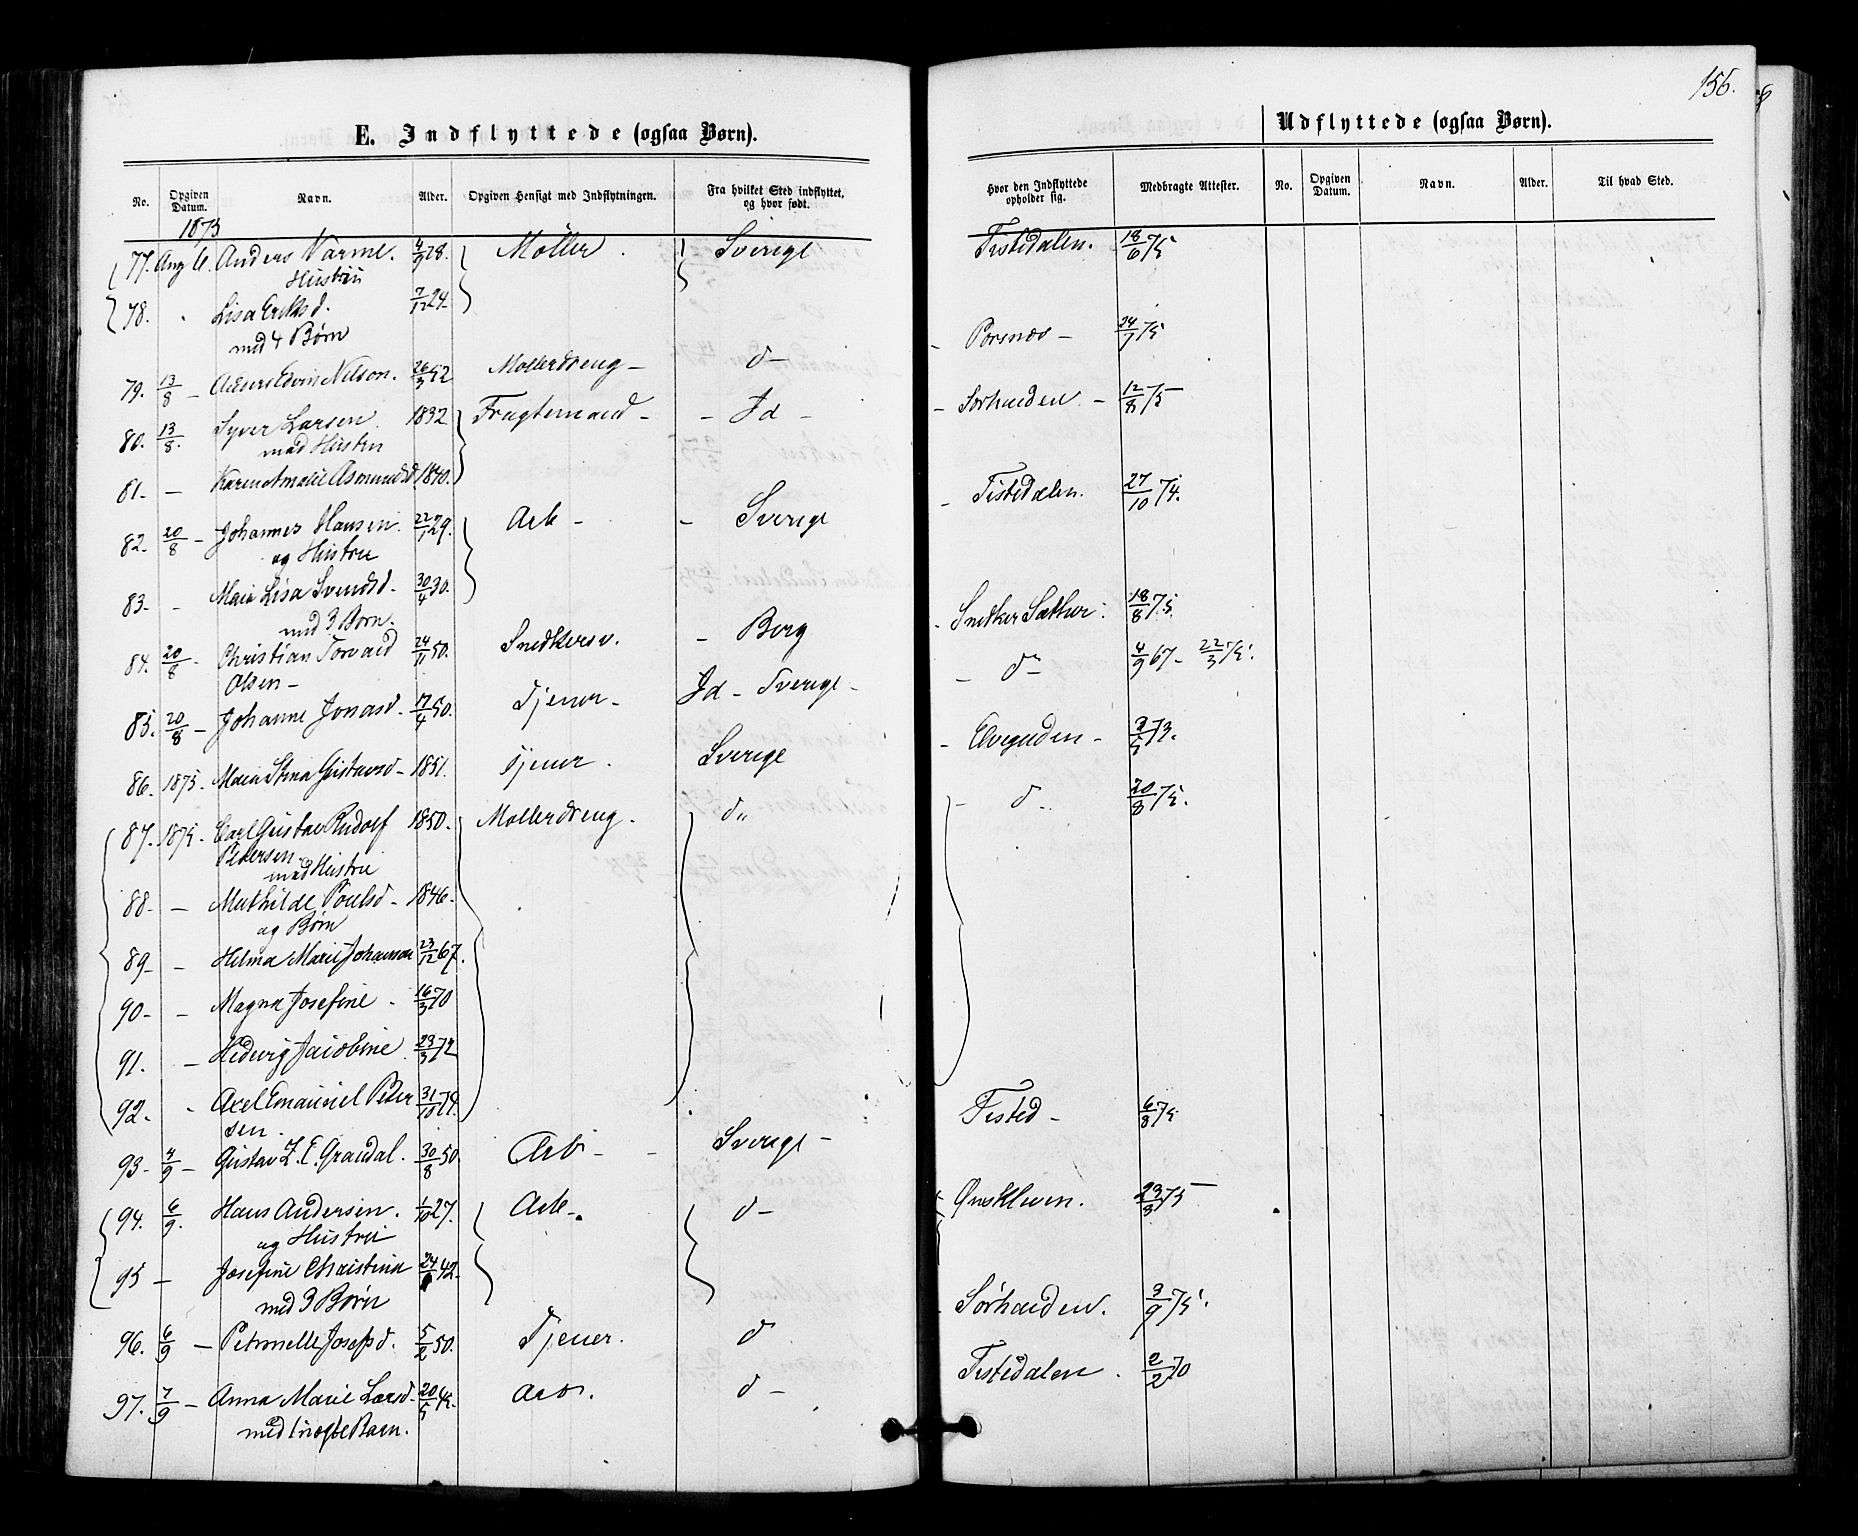 156.
E. Indflyttede (ogsaa Børn).
Udflyttede (ogsaa Børn).
No. Opgiven Datum. Navn. Alder. Opgiven Hensigt med Indflytningen. Fra hvilket Sted indflyttet, og hvor født. Hvor den Indflyttede opholder sig. Medbragte Attester. No. Opgiven Datum. Navn. Alder. Til hvad Sted.
1875
77. Aug 6. Anders Varme. 28. Møller. Sverige Tistedalen. 18/6 75
Hustru
78. Lisa Eriksd. 7/12 24.
med 4 Børn
79. 13/8 - Anders Edvin Nilson. 26/3 52 Møllerdreng - d - Porsnæs - 24/7 75
80. 13/8. Syver Larsen 1832 Fragtemand - - Id - Sørhauden - 12/8 75
med Hustru
81. - Karen Amalie Asmundsd. 1840.
82. 20/8 - Johannes Hansen. 22/1 29. Arb - - Sverige - Tistedalen. 27/10 74.
og Hustru
83. - Maia Lisa Svendsd. 30/4 30.
med 3 Børn.
84. 20/8 - Christian Torvald 24/11 50. Snedkersv. - Berg Snedker Sæther. 18/8 75
Olsen -
85. 20/8 - Johanne Jonasd. 17/4 50. Tjener - Id - Sverige - d - 4/9 67 - 22/3 75.
86. 1875. Maia Stina Gustavsd - 1851. Tjener. Sverige - Elvegaden - 2/5 73.
87. 1875. Carl Gustav Rudolf 1850. Møllerdreng. d - d - 20/8 75.
Pedersen
med Hustru
88 - - Mathilde Poulsd - 1846 -
og Børn
89 - - Hilma Marie Johanna 23/12 67.
90 - - Magna Josefine - 16/3 70
91. - Hedvig Jacobine 23/3 72
92. - Axel Emanuel Peter 31/10 74.
sen.
93 - 4/9 - Gustav Z. E. Grandal. 30/8 50. Arb - - Sverige - Tisted - 6/8 75
94. 6/9. Hans Andersen. 1/10 27. Arb - d - Ønskleven. 23/8 75
og Hustru
95 - Josefine Christina 42 -
med 3 Børn
96. 6/9 - Petronelle Josefsd. 5/2 50. Tjener. d Sørhauden. 3/9 75.
97. 7/9 - Anna Marie Larsd. 20/5 45. Arb. d - Tistedalen. 2/2 70
med 1 uægte Barn.